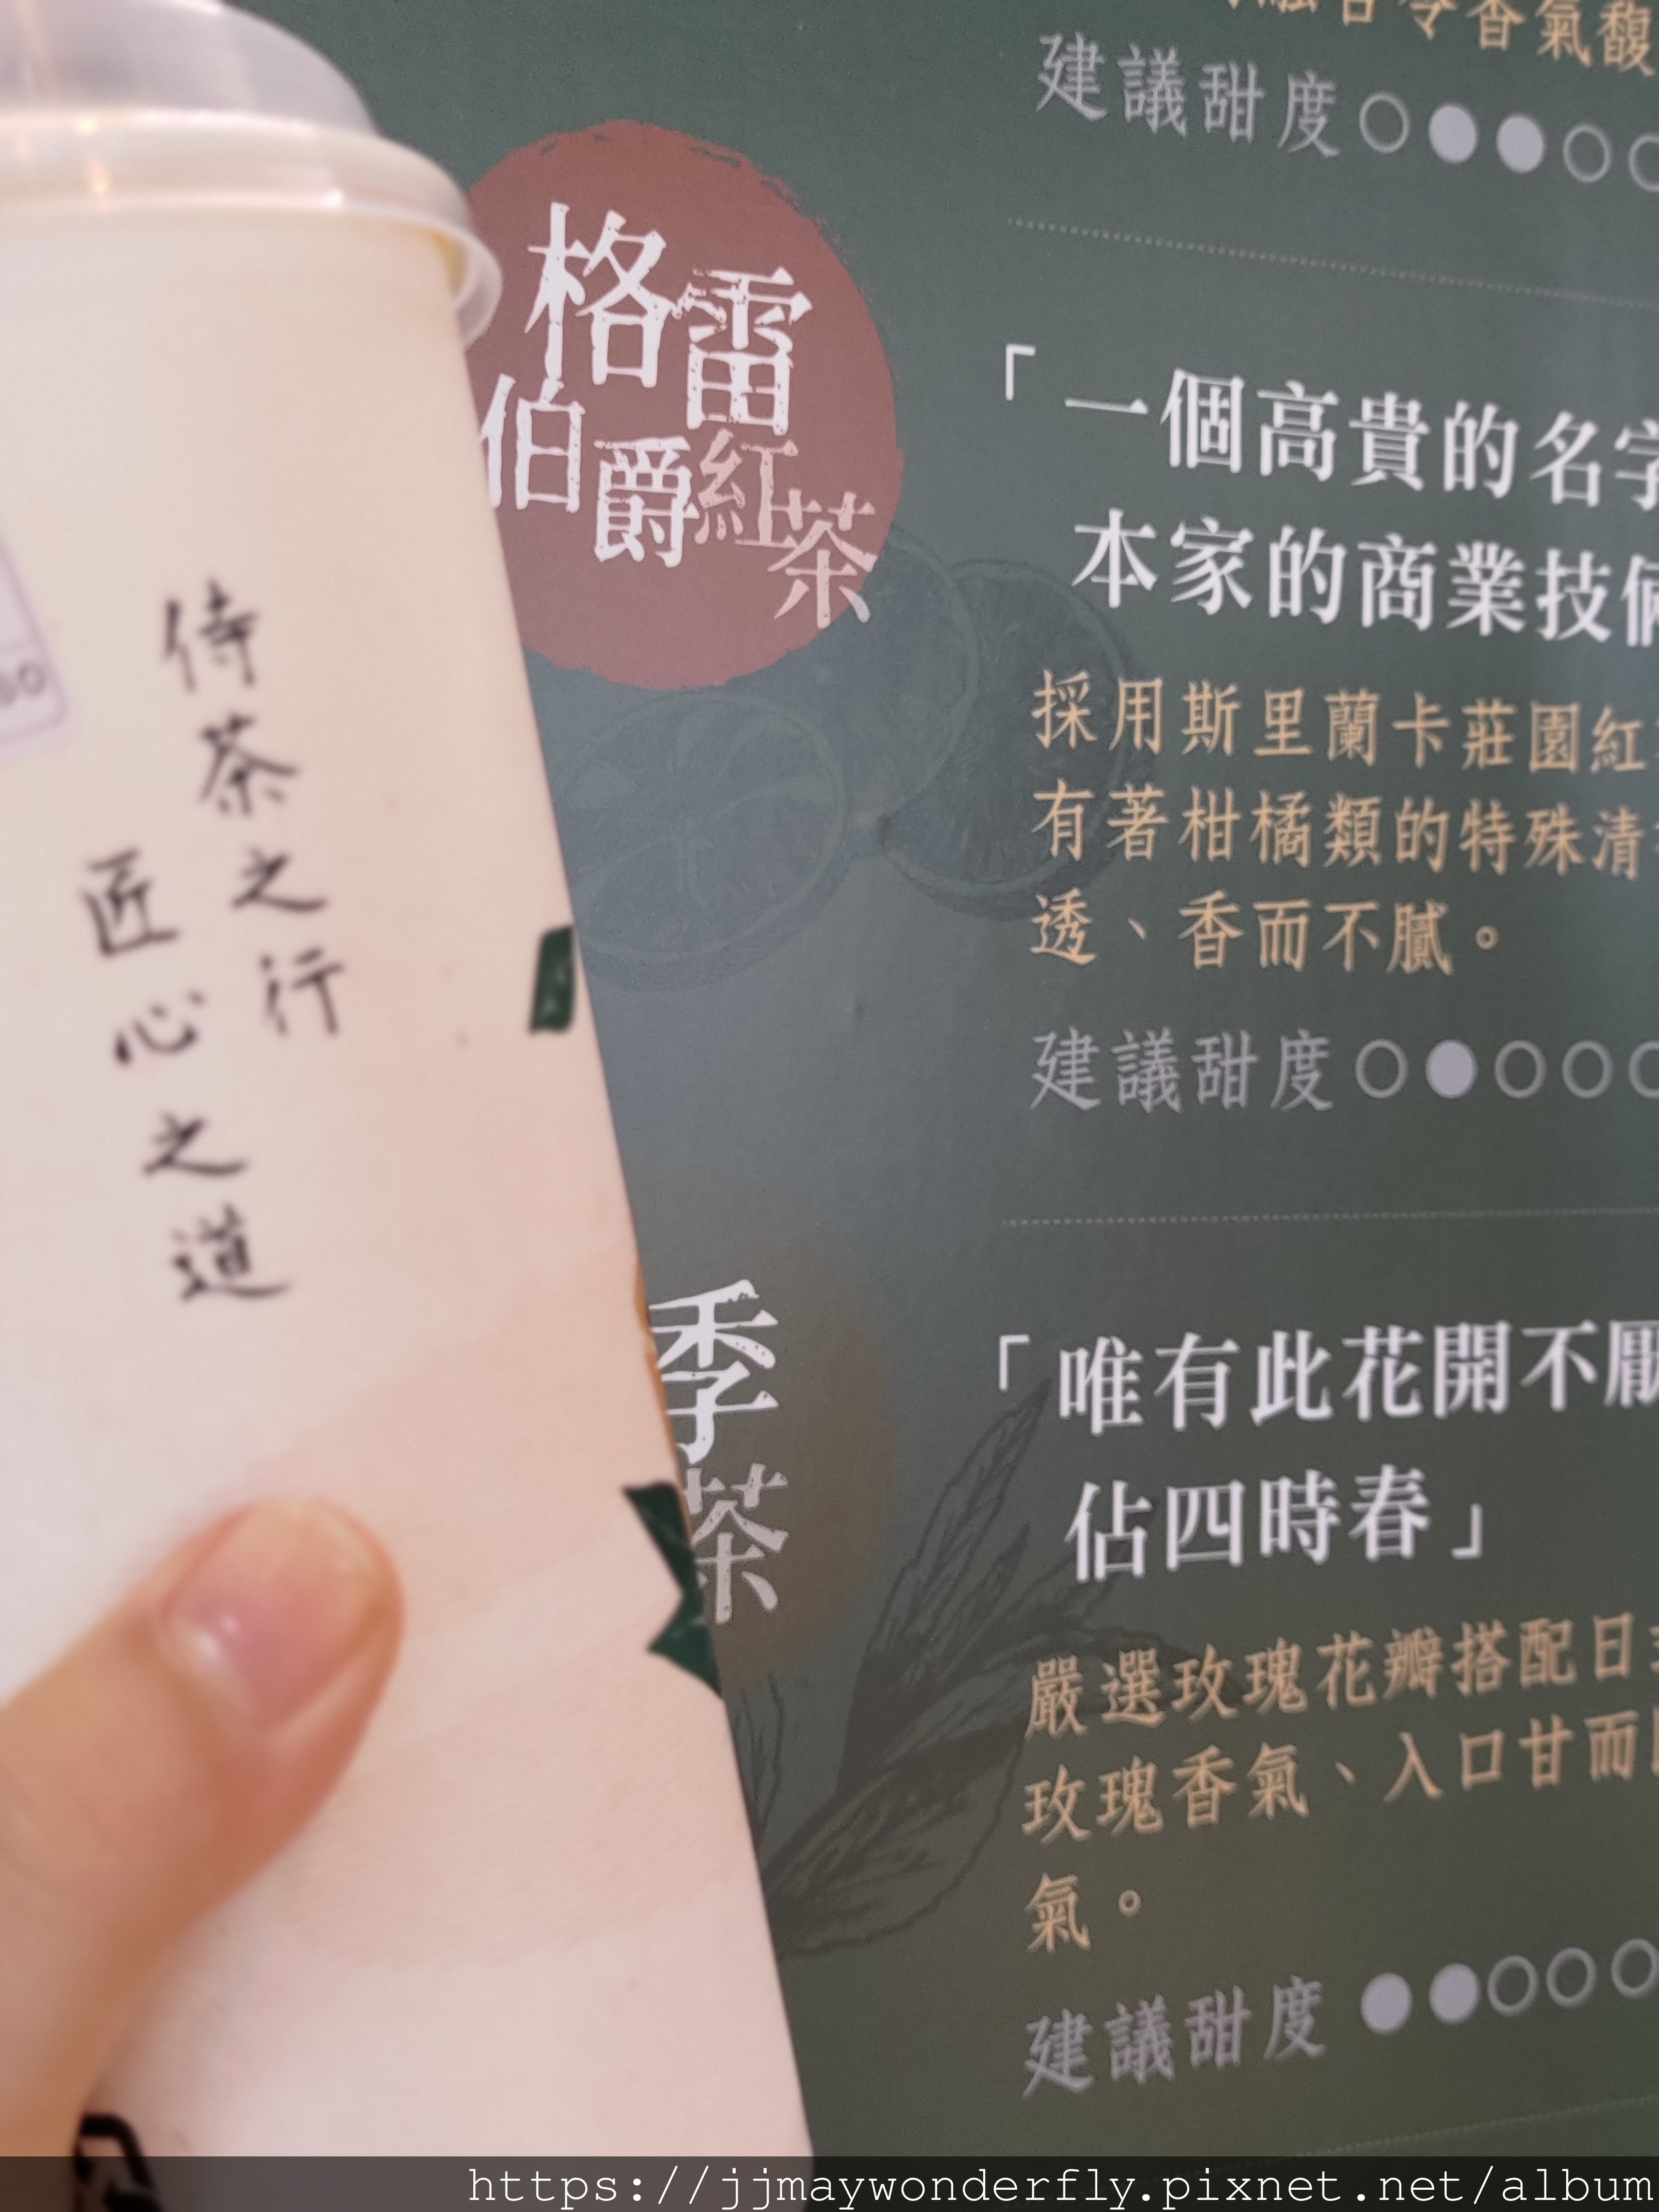 令香氣馥
建議甜度
格雷
伯爵紅茶
「一個高貴的名字
本家的商業技倆
採用斯里蘭卡莊園紅
有著柑橘類的特殊清
透、香而不膩。
建議甜度
侍茶之行
匠心之道
季茶
「唯有此花開不厭
佔四時春」
嚴選玫瑰花瓣搭配日
玫瑰香氣、入口甘而
氣。
建議甜度
https://jjmaywonderfly.pixnet.net/album